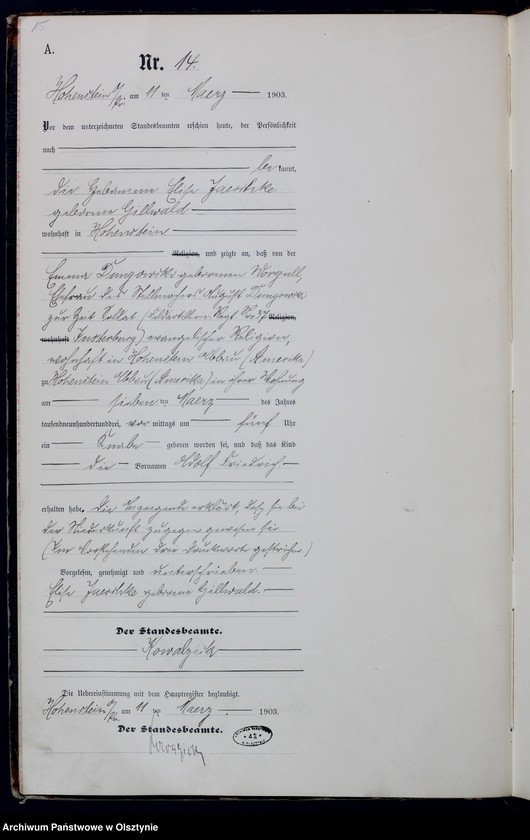 15
A.
Nr. 14.
Hohenstein O/Pr. am 11 ten Maerz 1903.
Vor dem unterzeichneten Standesbeamten erschien heute, der Persönlichkeit
nach
bekannt,
die Hebamme Elise Jaeschke
geborene Gillwald
wohnhaft in Hohenstein
Religion, und zeigte an, daß von der
Emma geborenen Worgull,
Ehefrau des Stellmachers August
zur Zeit Soldat (Regt Nr. 37 Religion,
wohnhaft Insterburg) evangelischer Religion,
wohnhaft in Hohenstein Abbau (Amerika)
zu Hohenstein Abbau (Amerika) in ihrer Wohnung
am sieben ten Maerz des Jahres
tausendneunhundertunddrei, vor mittags um fünf Uhr
ein Knabe geboren worden sei, und daß das Kind
die Vornamen Adolf Friedrich
erhalten habe. Die Anzeigende erklärt, daß sie bei
der Niederkunft zugegen gewesen sei
(Im Vorstehenden drei Druckworte gestrichen)
Vorgelesen, genehmigt und unterschrieben.
Elise Jaeschke geborene Gillwald.
Der Standesbeamte.
Kowalzik
Die Uebereinstimmung mit dem Hauptregister beglaubigt.
Hohenstein O/Pr. am 11 ten Maerz 1903.
Der Standesbeamte.
Kowalzik
Archiwum Państwowe w Olsztynie